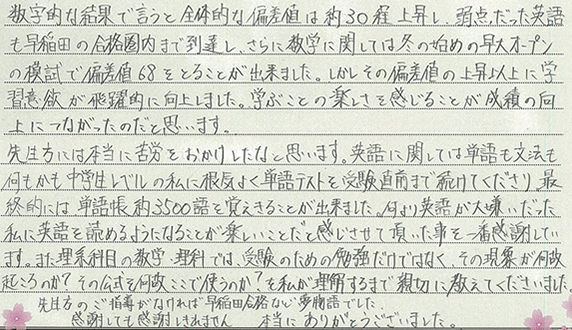 数字的な結果で言うと全体的な偏差値は約30程上昇し、弱点だった英語
も早稲田の合格圏内まで到達し、さらに数学に関しては冬の始めの早大オープン
の模試で偏差値68をとることが出来ました。しかしその偏差値の上昇以上に学
習意欲が飛躍的に向上しました。学ぶことの楽しさを感じることが成績の向
上につながったのだと思います。
先生方には本当に苦労をおかけしたなと思います。英語に関しては単語も文法も
何もかも中学生レベルの私に根気よく単語テストを受験直前まで続けてくださり、最
終的には単語帳約3500語を覚えきることが出来ました。何より英語が大嫌いだった
私に英語を読めるようになることが楽しいことだと感じさせて頂いた事を一番感謝してい
ます。また理系科目の数学・理科では、受験のための勉強だけではなく、その現象が何故
起こるのか?その公式を何故ここで使うのか?を私が理解するまで親切に教えてくださいました。
先生方のご指導がなければ早稲田合格など夢物語でした。
感謝しても感謝しきれません 本当にありがとうございました。